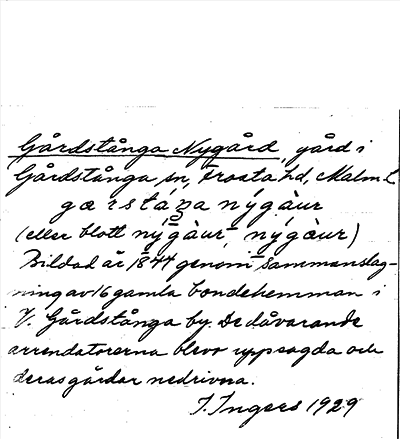 Gårdstånga Nygård, gård i
Gårdstånga sn, Frosta hd, Malm. L
gærstáŋa nýgàur
(eller blott nýgàur, nýgæur)
Bildad år 1844 genom sammanslag-
ning av 16 gamla bondehemman i
V. Gårdstånga by. De dåvarande
arrendatorerna blevo uppsagda och
deras gårdar nedrivna.
I. Ingers 1929